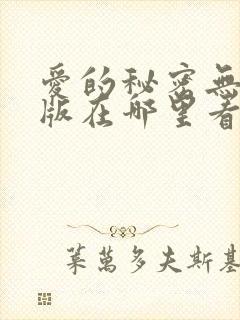 愛的秘密無
版在哪里看
萊萬多夫斯基